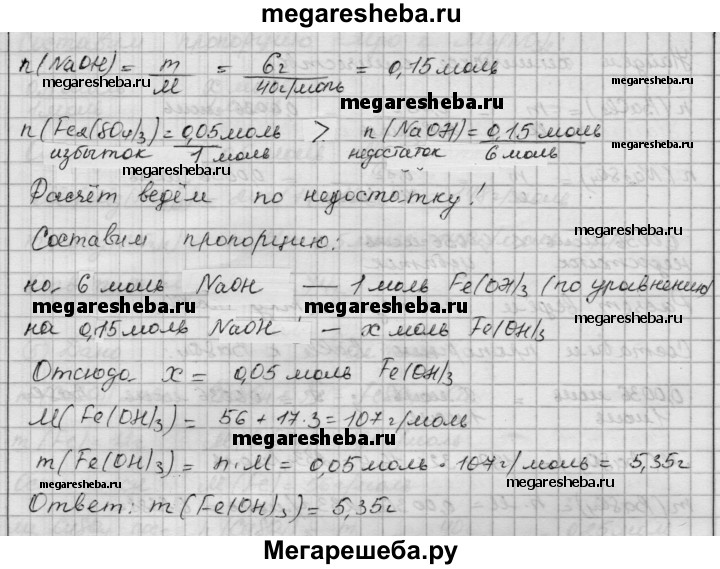 megaresheba.ru
n(NaOH) = m/M = 6г/40г/моль = 0,15 моль
megaresheba.ru megaresheba.ru megaresheba.ru
n(Fe2(SO4)3) = 0,05 моль/1 моль > n(NaOH) = 0,15 моль/6 моль
избыток недостаток
megaresheba.ru megaresheba.ru
Расчёт ведём по недостатку!
megaresheba.ru
Составим пропорцию:
на 6 моль NaOH — 1 моль Fe(OH)3 (по уравнению)
megaresheba.ru megaresheba.ru megaresheba.ru
на 0,15 моль NaOH — x моль Fe(OH)3
Отсюда x = 0,05 моль Fe(OH)3
M(Fe(OH)3) = 56 + 17·3 = 107 г/моль
megaresheba.ru
m(Fe(OH)3) = n·M = 0,05 моль · 107 г/моль = 5,35г
megaresheba.ru megaresheba.ru megaresheba.ru
Ответ: m(Fe(OH)3) = 5,35г
Мегарешеба.ру